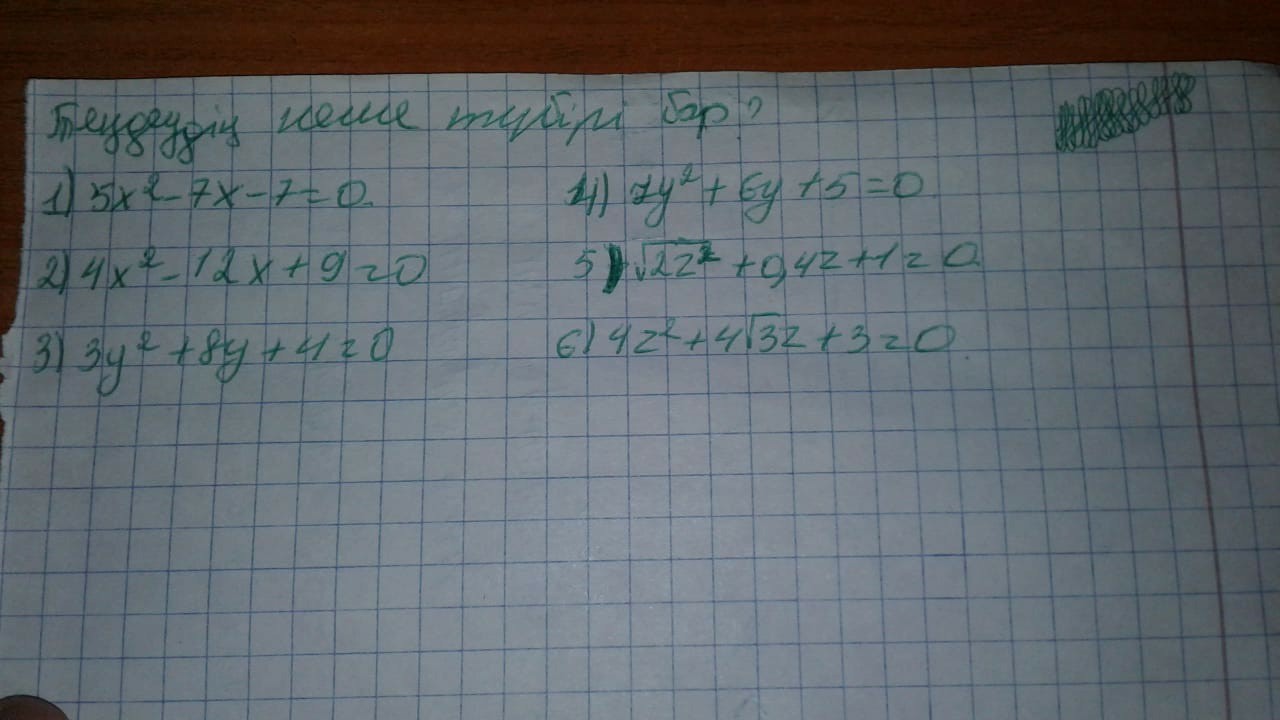 Теңдеудің неше түбірі бар?
1) 5x² - 7x - 7 = 0
2) 4x² - 12x + 9 = 0
3) 3y² + 8y + 4 = 0
4) 7y² + 6y + 5 = 0
5) √2z² + 0,4z + 1 = 0
6) 4z² + 4√3z + 3 = 0